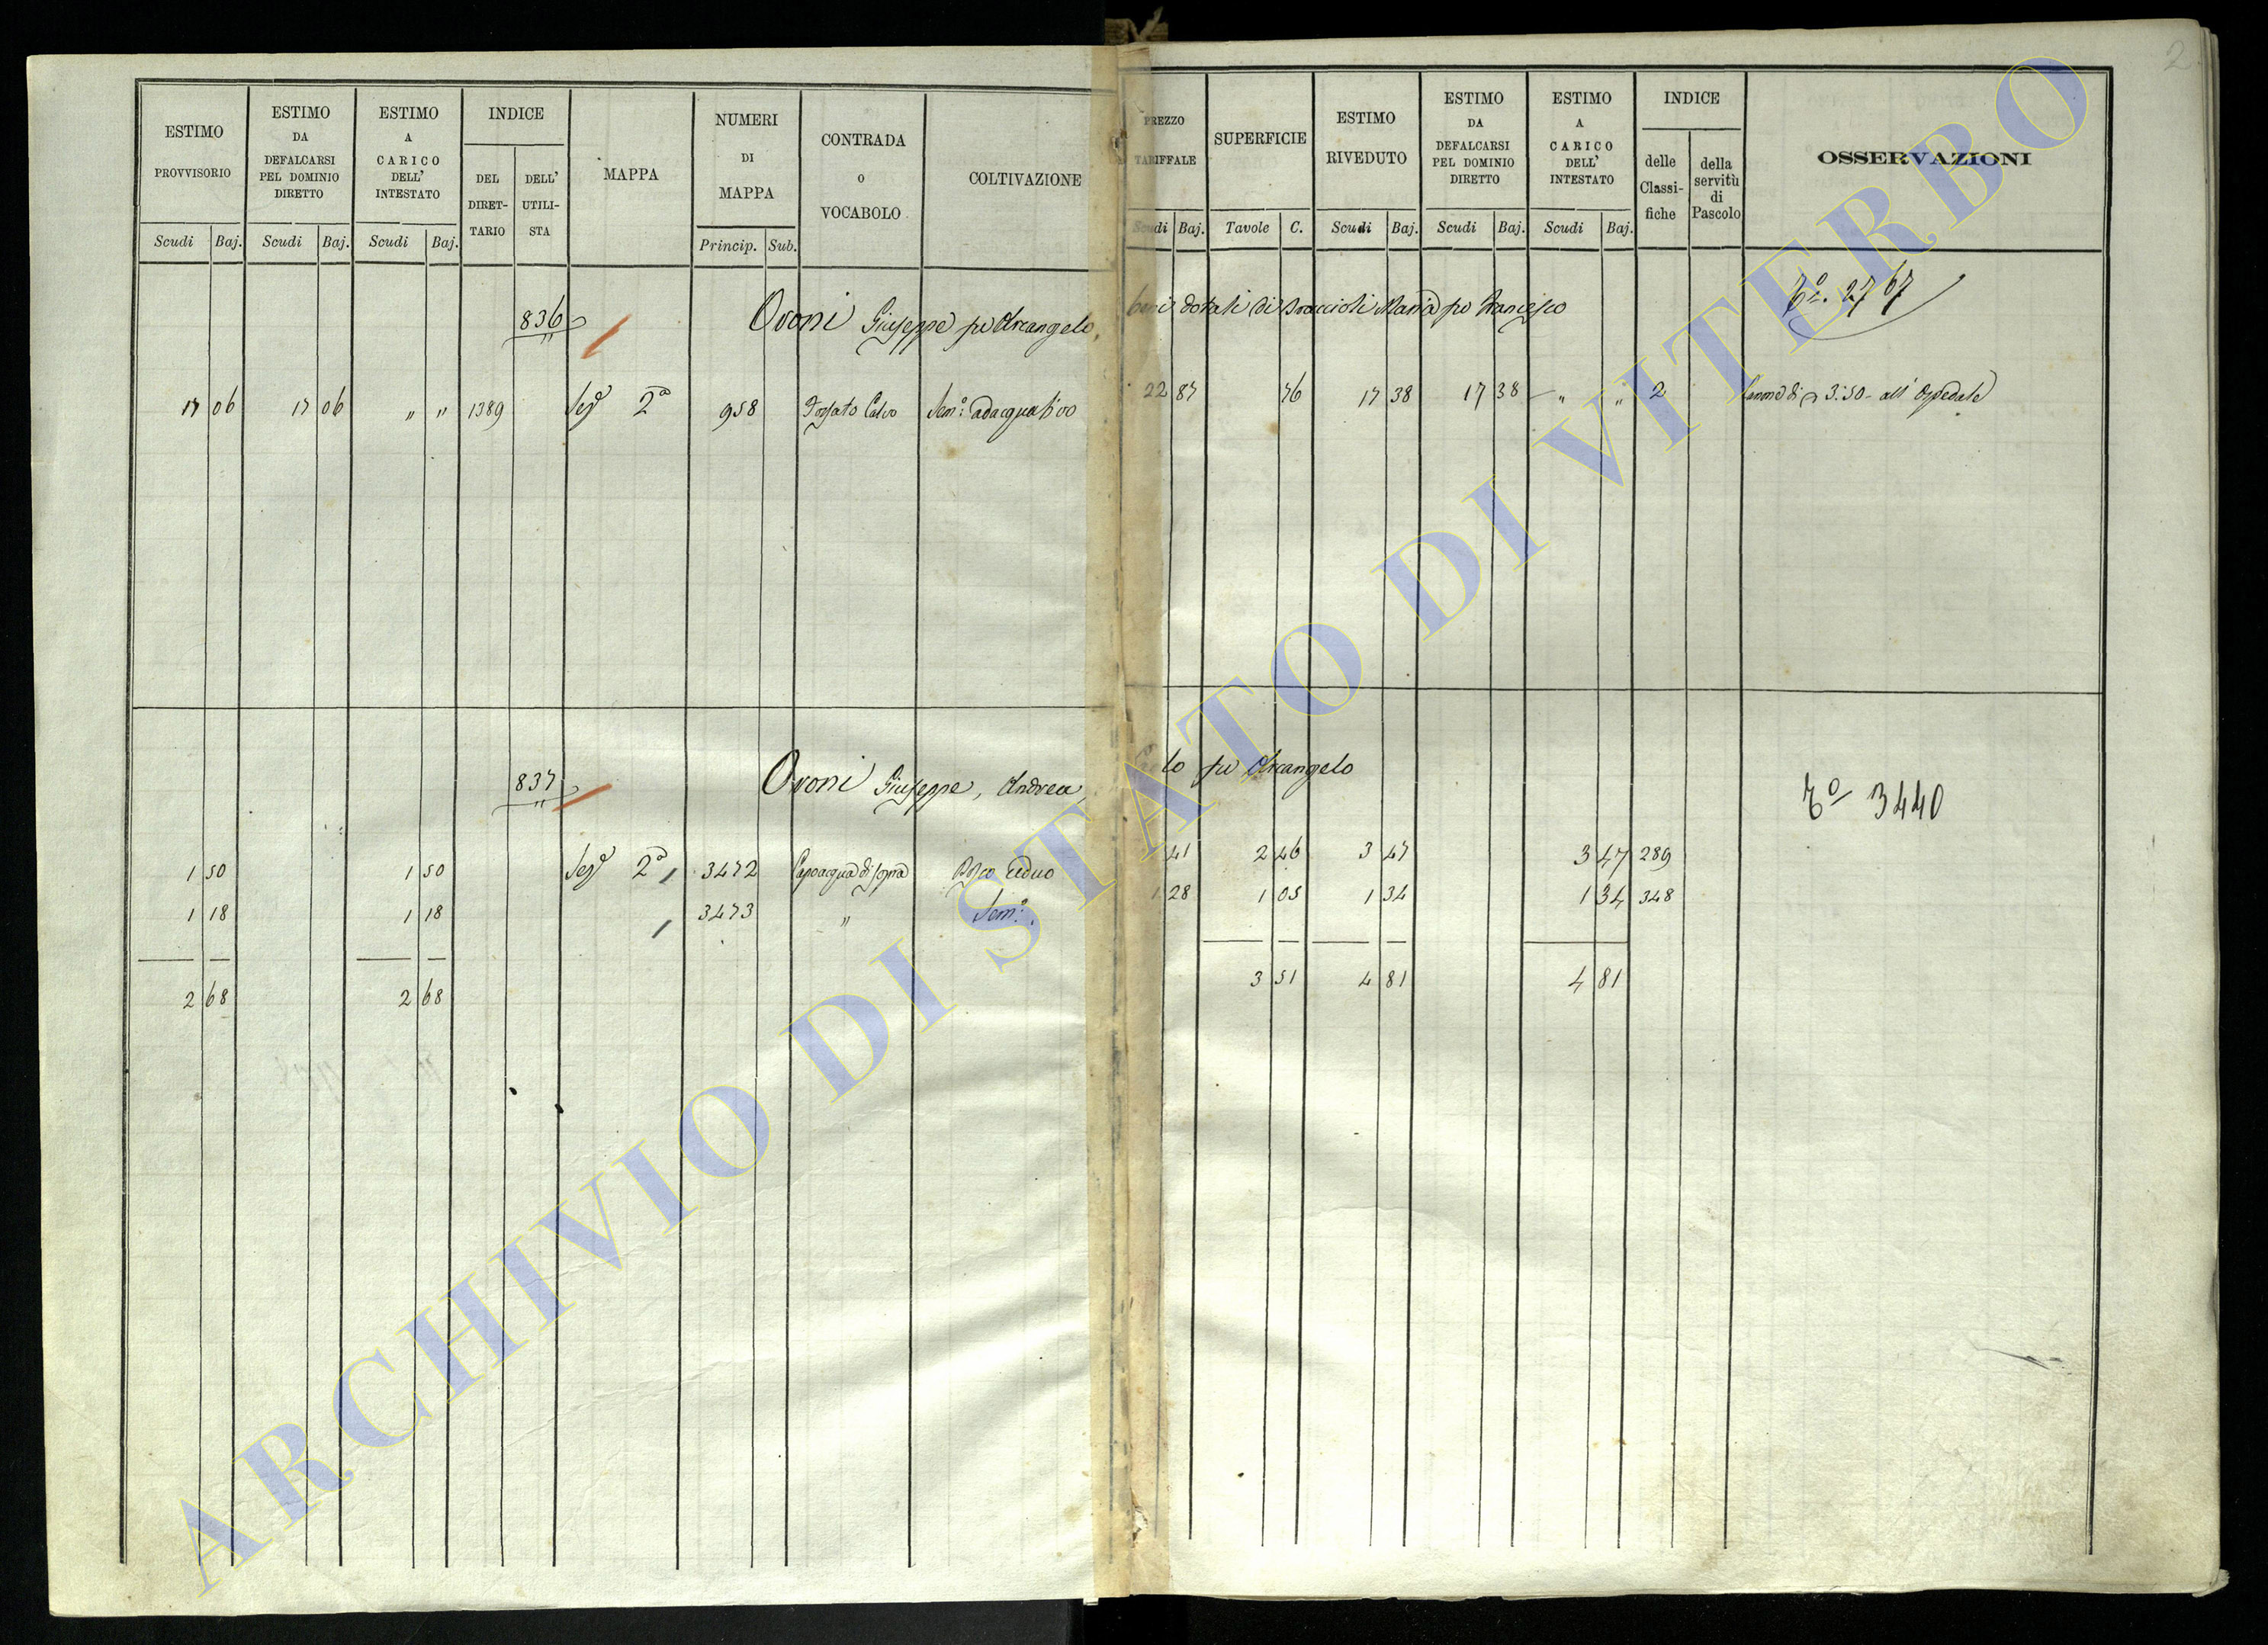 2
ESTIMO PROVVISORIO
ESTIMO DA DEFALCARSI PEL DOMINIO DIRETTO
ESTIMO A CARICO DELL' INTESTATO
INDICE
DEL DIRET-
TARIO
DELL' UTILI-
STA
MAPPA
NUMERI DI MAPPA
CONTRADA O VOCABOLO
COLTIVAZIONE
PREZZO TARIFFALE
SUPERFICIE
ESTIMO RIVEDUTO
ESTIMO DA DEFALCARSI PEL DOMINIO DIRETTO
ESTIMO A CARICO DELL' INTESTATO
INDICE
delle Classi-
fiche
della servitù di Pascolo
OSSERVAZIONI
Scudi Baj. Scudi Baj. Scudi Baj. Princip. Sub. Scudi Baj. Tavole C. Scudi Baj. Scudi Baj. Scudi Baj.
836 Oroni Giuseppe fu Arcangelo, beni dotali di Braccioli Maria fu Francesco Tº. 2767
17 06 17 06 " " 1389 Sezº 2ª 958 Fossato Calvo Semº: adacquativo 22 87 76 17 38 17 38 " " 2 Canone di 3:50 all' Ospedale
837 Oroni Giuseppe, Andrea, lo fu Arcangelo Tº 3440
1 50 1 50 Sezº 2ª 3472 Capoacqua di sopra Bosco ceduo 41 2 46 3 47 3 47 289
1 18 1 18 3473 " Semº: 1 28 1 05 1 34 1 34 348
2 68 2 68 3 51 4 81 4 81
ARCHIVIO DI STATO DI VITERBO